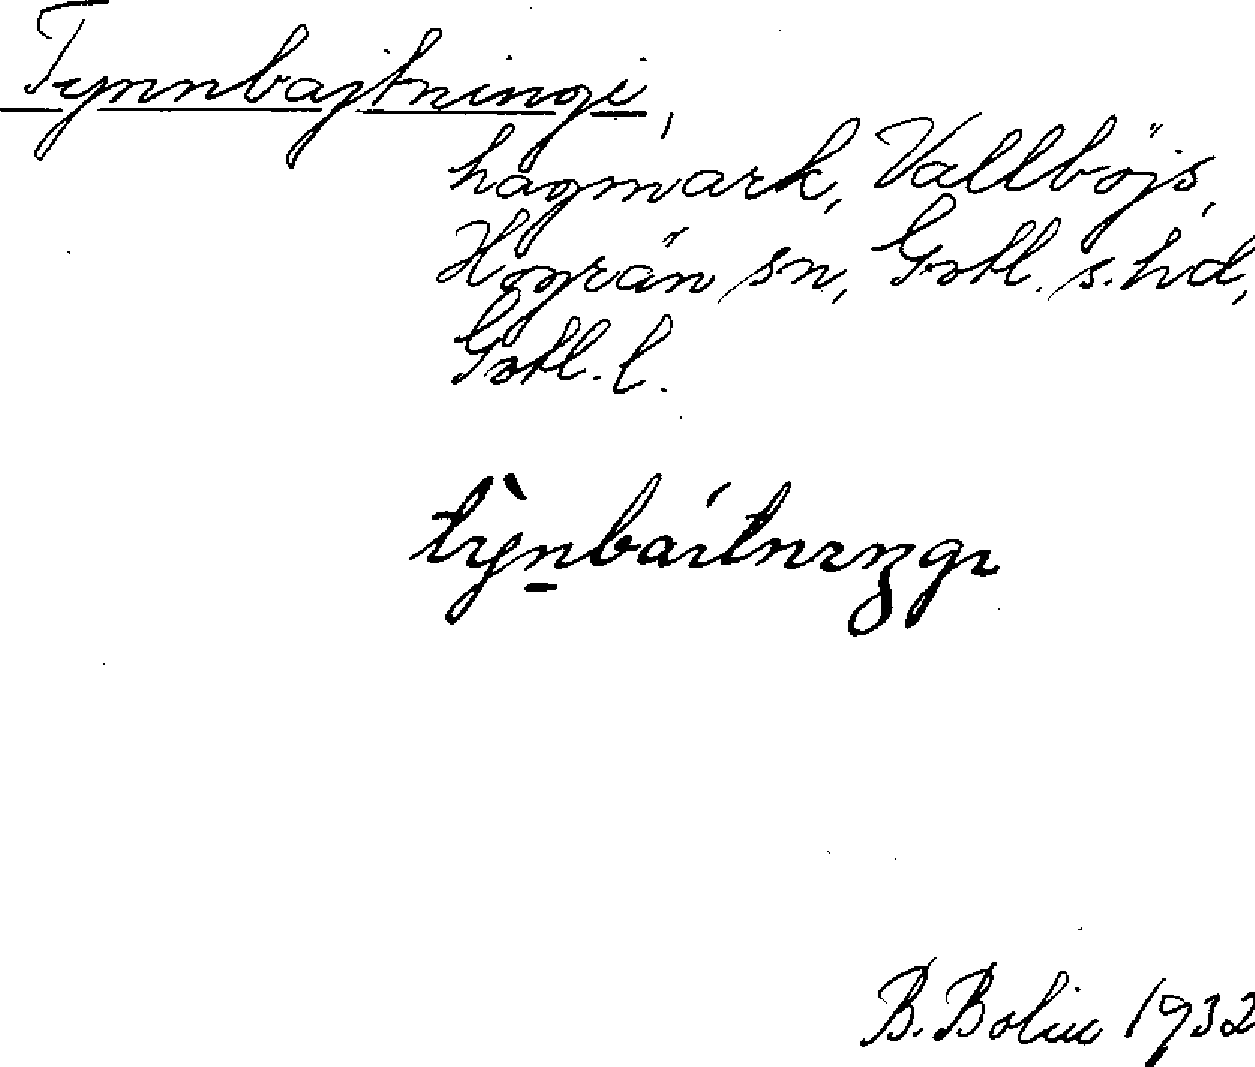 Tynnbajtningi,
hagmark, Vallböjs,
Hogrän sn, Gotl. s. hd,
Gotl. l.
tỳn̲báitnıŋgı
B. Bolin 1932